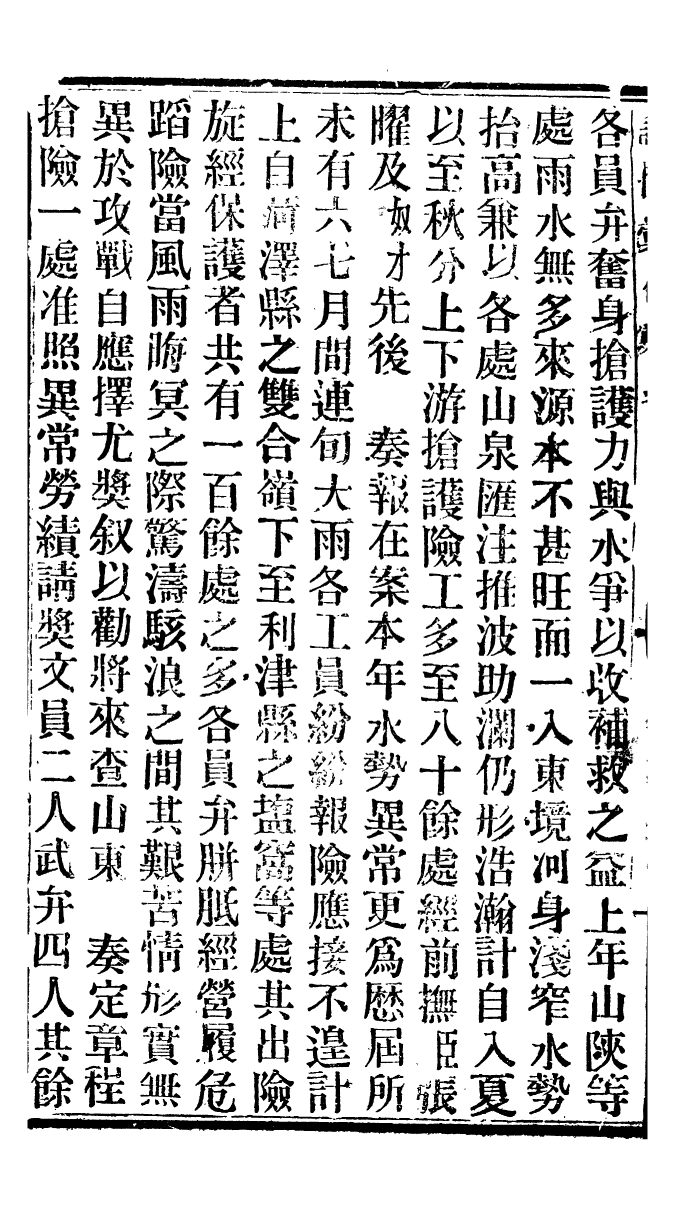 各員弁奮身搶護力與水爭以收補救之益上年山陝等
處雨水無多來源本不甚旺而一入東境河身淺窄水勢
抬高兼以各處山泉匯注推波助瀾仍形浩瀚計自入夏
以至秋分上下游搶護險工多至八十餘處經前撫臣張
曜及奴才先後　奏報在案本年水勢異常更為歷屆所
未有六七月間連旬大雨各工員紛紛報險應接不遑計
上自菏澤縣之雙合嶺下至利津縣之塩窩等處其出險
旋經保護者共有一百餘處之多各員弁胼胝經營履危
蹈險當風雨晦冥之際驚濤駭浪之間其艱苦情形實無
異於攻戰自應擇尤獎叙以勸將來查山東　奏定章程
搶險一處准照異常勞績請獎文員二人武弁四人其餘